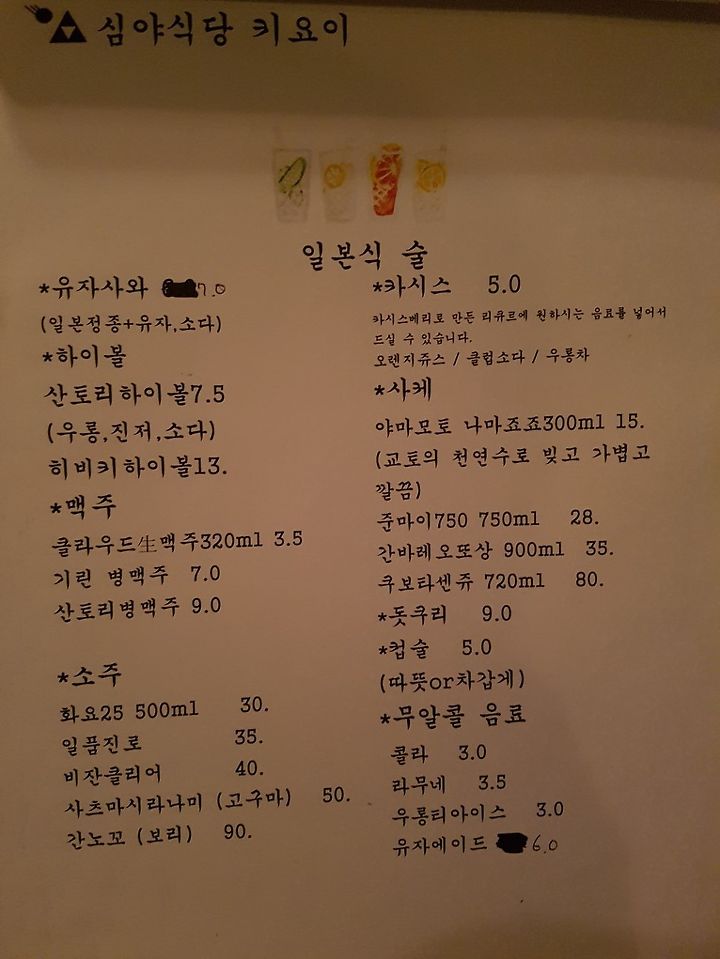 심야식당 키요이
일본식 술
*유자사와 7.0
(일본정종+유자,소다)
*하이볼
산토리하이볼7.5
(우롱,진저,소다)
히비키하이볼13.
*맥주
클라우드生맥주320ml 3.5
기린 병맥주 7.0
산토리병맥주 9.0
*소주
화요25 500ml 30.
일품진로 35.
비잔클리어 40.
사츠마시라나미 (고구마) 50.
간노꼬 (보리) 90.
*카시스 5.0
카시스베리로 만든 리큐르에 원하시는 음료를 넣어서
드실 수 있습니다.
오렌지쥬스 / 클럽소다 / 우롱차
*사케
야마모토 나마죠죠300ml 15.
(교토의 천연수로 빚고 가볍고
깔끔)
준마이750 750ml 28.
간바레오또상 900ml 35.
쿠보타센쥬 720ml 80.
*돗쿠리 9.0
*컵술 5.0
(따뜻or차갑게)
*무알콜 음료
콜라 3.0
라무네 3.5
우롱티아이스 3.0
유자에이드 6.0